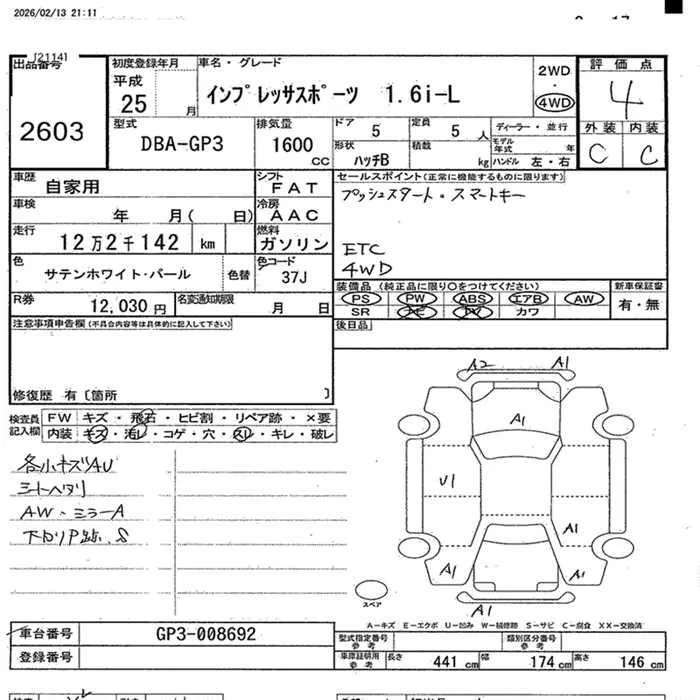 2026/02/13 21:11
[2114]
出品番号 2603
初度登録年月 平成 25 月
車名・グレード インプレッサスポーツ 1.6i-L
2WD ・ 4WD
評価点 4
外装 内装
C C
型式 DBA-GP3
排気量 1600 CC
ドア 5
定員 5 人
ディーラー・並行
モデル年式 年
形状 ハッチB
積載 kg
ハンドル 左・右
車歴 自家用
シフト FAT
車検 年 月( 日)
冷房 AAC
走行 12万2千142 km
燃料 ガソリン
色 サテンホワイト・パール 色替
色コード 37J
R券 12,030 円
名変通知期限 月 日
セールスポイント(正常に機能するものに限ります)
プッシュスタート・スマートキー
ETC
4WD
装備品(純正品に限り○をつけてください)
新車保証書
PS PW ABS エアB AW
有・無
SR ナビ TV カワ
後日品
注意事項申告欄(不具合内容等は具体的に記入して下さい)
修復歴 有〔箇所 〕
検査員記入欄
FW キズ・飛石・ヒビ割・リペア跡・×要
内装 キズ・汚レ・コゲ・穴・スレ・キレ・破レ
各小キズAU
シートヘタリ
AW・ミラーA
A2 A1
A1
U1
A1
A1 A1
A1
スペア
A-キズ E-エクボ U-凹み W-補修跡 S-サビ C-腐食 XX-交換済
車台番号 GP3-008692
登録番号
型式指定番号 参考
類別区分番号 参考
車庫証明用 参考
長さ 441 cm 幅 174 cm 高さ 146 cm